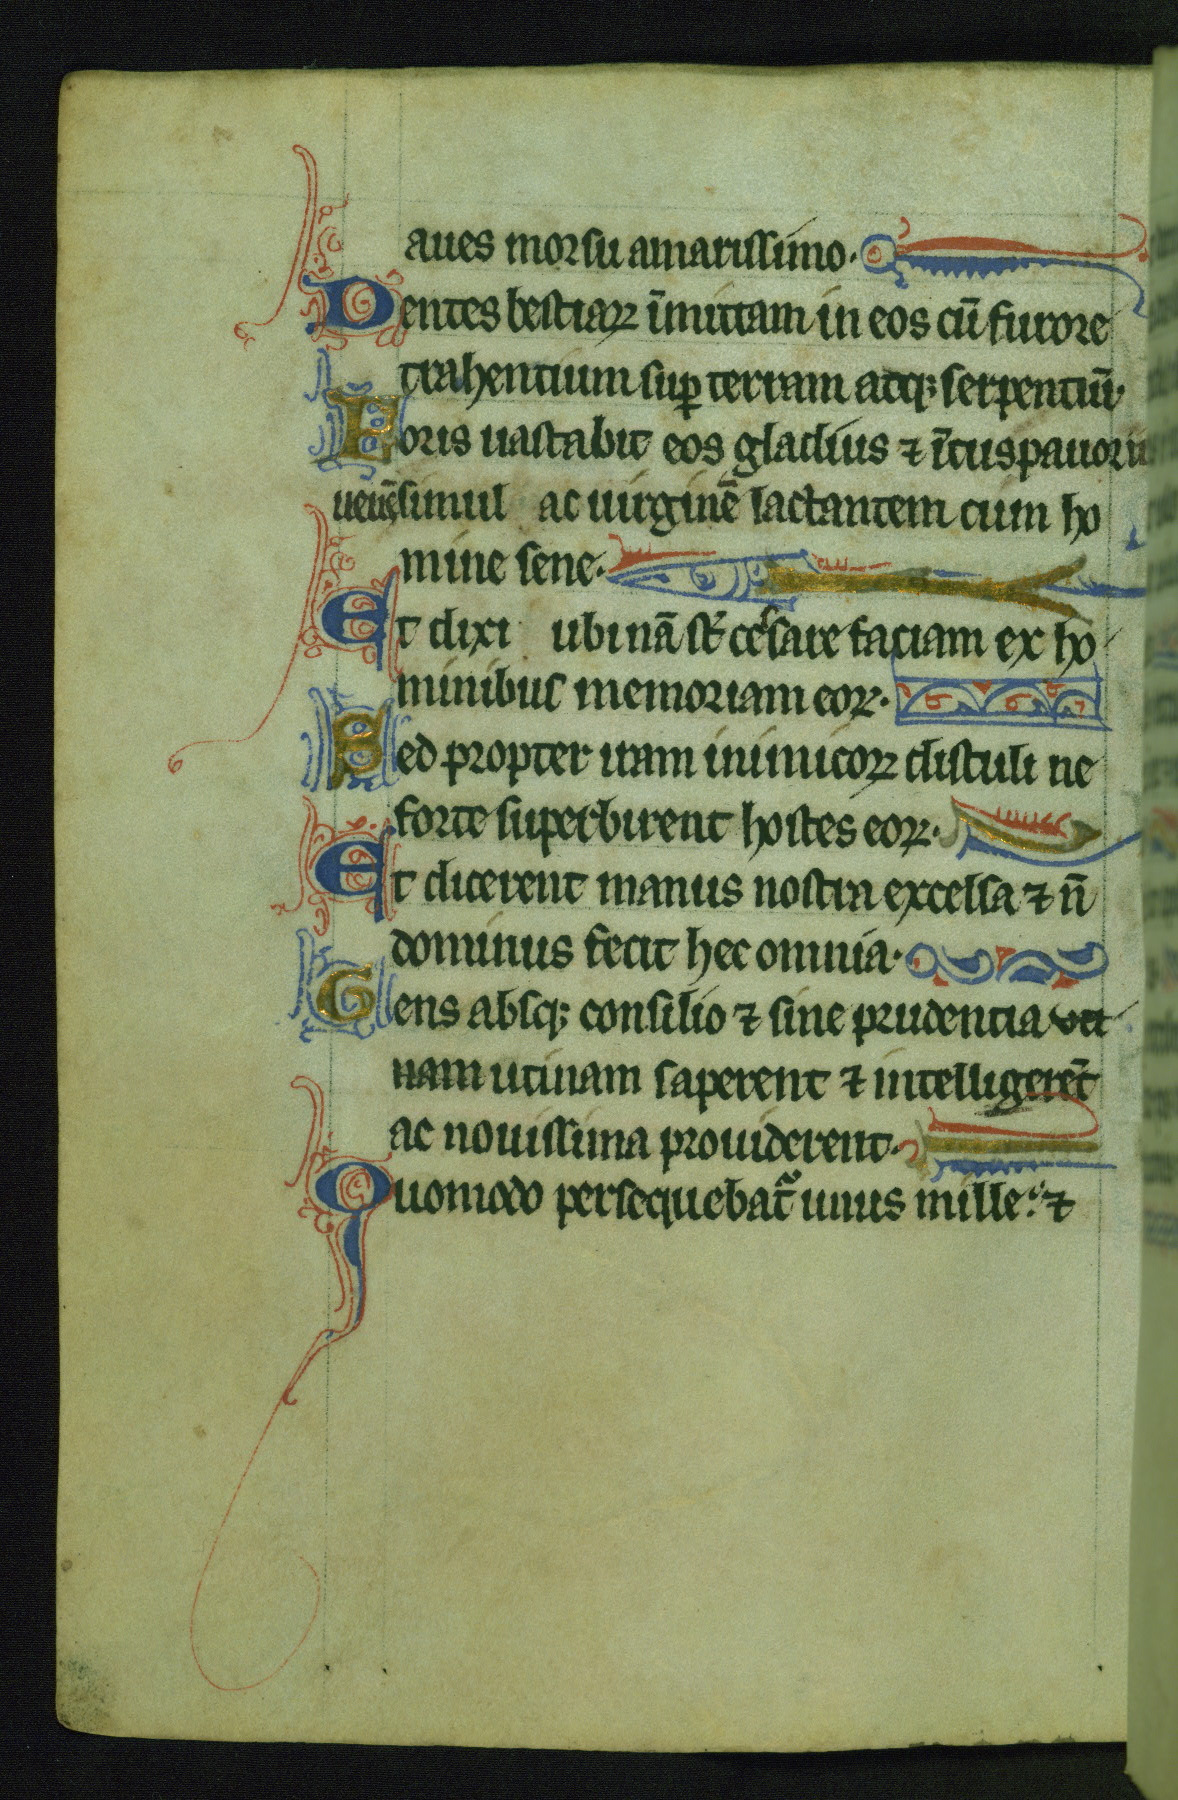 aues morsu amarissimo.
Dentes bestiaꝝ īmittam in eos cū furore
trahentium suꝑ terram atqꝫ serpentiū.
Foris uastabit eos gladius ⁊ ītus pauor iu
uenē simul ac uirginē lactantem cum ho
mine sene.
Et dixi ubi nā st̄ cessare faciam ex ho
minibus memoriam eoꝝ.
Sed propter iram inimicoꝝ distuli ne
forte superbirent hostes eoꝝ.
Et dicerent manus nostra excelsa ⁊ n̄
dominus fecit hec omnia.
Gens absqꝫ consilio ⁊ sine prudentia uti
nam utinam saperent ⁊ intelligerēt
ac nouissima prouiderent.
Quomodo persequebat᷑ unus mille: ⁊